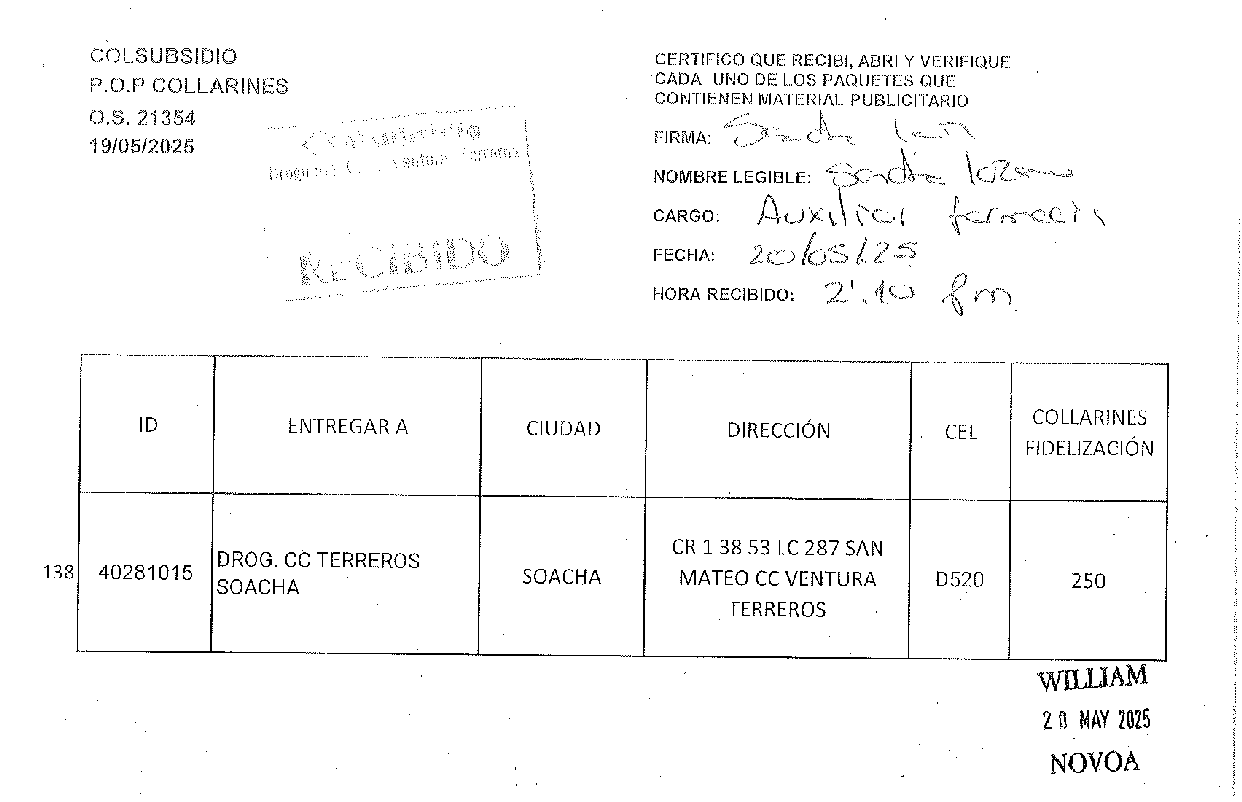 COLSUBSIDIO
P.O.P COLLARINES
O.S. 21354
19/05/2025
Colsubsidio
RECIBIDO
CERTIFICO QUE RECIBI, ABRI Y VERIFIQUE
CADA UNO DE LOS PAQUETES QUE
CONTIENEN MATERIAL PUBLICITARIO
FIRMA:
NOMBRE LEGIBLE: Sandra Lozano
CARGO: Auxiliar farmacia
FECHA: 20/05/25
HORA RECIBIDO: 2'.10 pm
ID ENTREGAR A CIUDAD DIRECCIÓN CEL COLLARINES FIDELIZACIÓN
138 40281015 DROG. CC TERREROS SOACHA SOACHA CR 1 38 53 LC 287 SAN MATEO CC VENTURA TERREROS D520 250
WILLIAM
20 MAY 2025
NOVOA